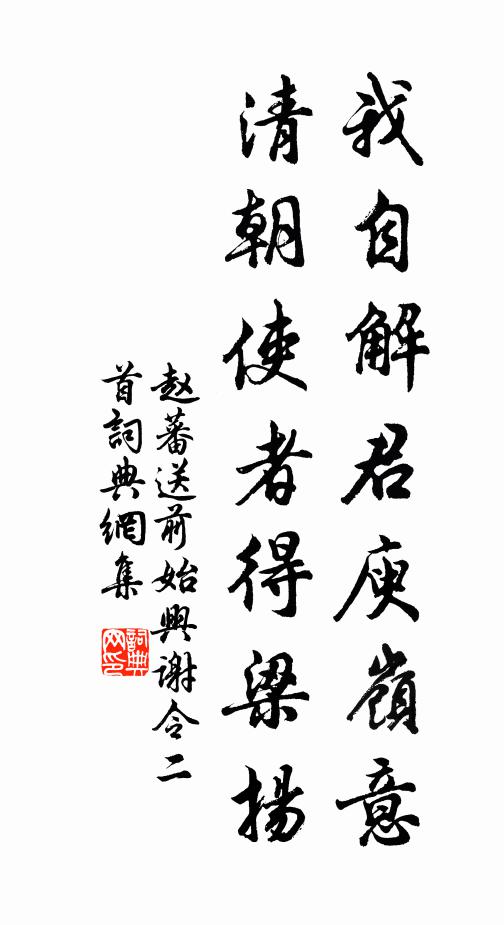 我自解君庾嶺意
清朝使者得梁揚
赵蕃送前始興謝令二
首詞典網集
詞典网印